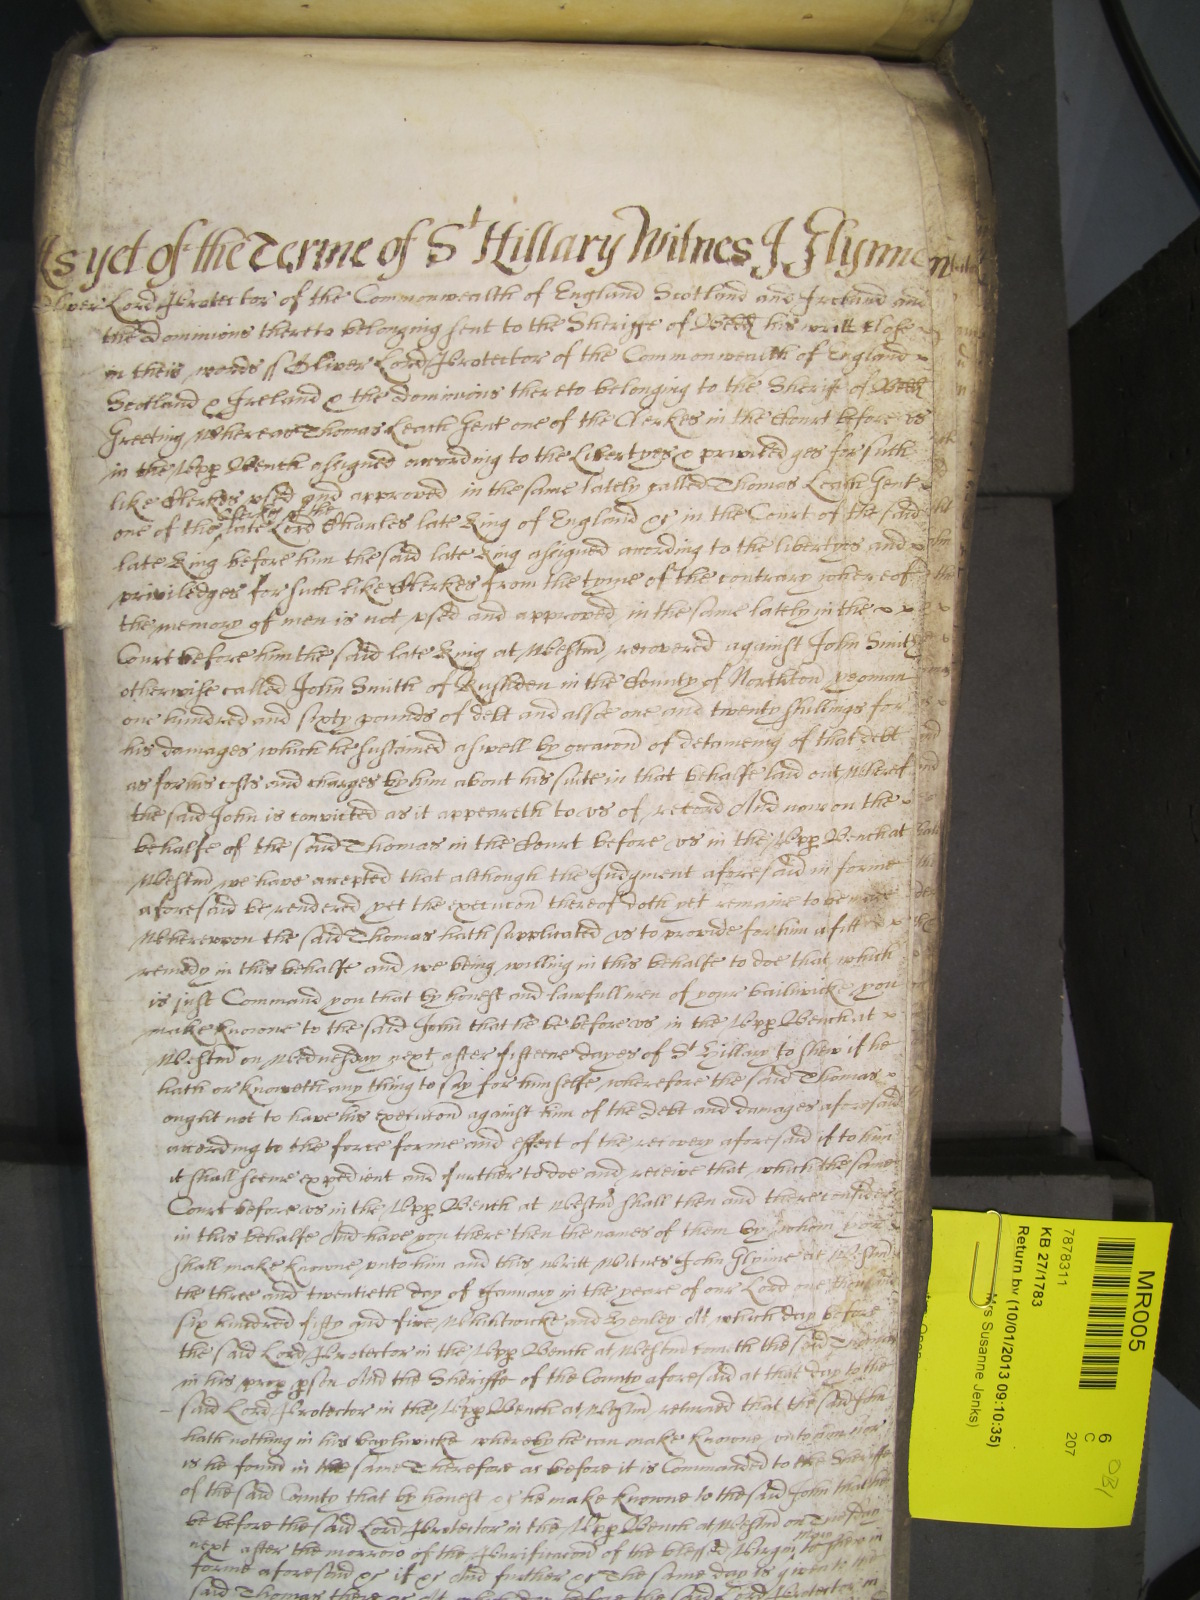 As yet of the Terme of St Hillary Witnes J Glynne
Oliver Lord Protector of the Commonwealth of England Scotland and Ireland and
the Dominions thereto belonging sent to the Sheriffe of his writt close
in theis words ss Oliver Lord Protector of the Commonwealth of England
Scotland & Ireland & the dominions thereto belonging to the Sheriffe of
Greeting Whereas Thomas Leach Gent one of the Clerkes in the Court before us
in the Upp Bench assigned according to the Libertyes & priviledges for such
like Clerkes used and approved in the same lately called Thomas Leach Gent
one of the Clerkes of the late Lord Charles late King of England &c in the Court of the said
late King before him the said late King assigned acording to the libertyes and
priviledges for such like Clerkes from the tyme of the contrary whereof
the memory of men is not used and approved in the same lately in the
Court before him the said late King at Westm recovered against John Smith
otherwise called John Smith of Rushden in the County of Northton yeoman
one hundred and sixty pounds of debt and alsoe one and twenty shillings for
his damages which he susteined aswell by occacon of deteineing of that debt
as for his costs and charges by him about his suite in that behalfe laid out Whereof
the said John is convicted as it appeareth to us of record And now on the
behalfe of the said Thomas in the Court before us in the Upp Bench at
Westm we have accepted that although the Judgment aforesaid in forme
aforesaid be rendered yet the execucon thereof doth yet remaine to be made
Whereupon the said Thomas hath supplicated us to provide for him a fitt
remedy in this behalfe and we being willing in this behalfe to doe that which
is just Command you that by honest and lawfull men of your bailiwicke you
make knowne to the said John that he be before us in the Upp Bench at
Westm on Wednesday next after fifteene dayes of St Hillary to shew if he
hath or knoweth any thing to say for himselfe wherefore the said Thomas
ought not to have his execucon against him of the debt and damages aforesaid
according to the force forme and effect of the recovery aforesaid if to him
it shall seeme expedient and further to doe and receive that which the same
Court before us in the Upp Bench at Westm shall then and there consider
in this behalfe And have you there then the names of them by whom you
shall make knowne unto him and this Writt Witnes John Glynne at Westm
the three and twentieth day of January in the yeare of our Lord one thousand
six hundred fifty and five Whitwicke and Henley At which day before
the said Lord Protector in the Upp Bench at Westm cometh the said Thomas
in his prop pson And the Sheriffe of the County aforesaid at that day to the
said Lord Protector in the Upp Bench at Westm returned that the said John
hath nothing in his bayliwicke whereby he can make knowne unto him nor
is he found in the same Therefore as before it is Commanded to the Sheriffe
of the said County that by honest &c he make knowne to the said John that he
be before the said Lord Protector in the Upp Bench at Westm on Tuesday
next after the morrow of the Purificacon of the blessed Virgin Mary to shew in
forme aforesaid &c if &c And further &c The same day is given to the
said Thomas there &c At which day before the said Lord Protector in
MR005
6
C
207
7878311
KB 27/1783
Return by (10/01/2013 09:10:35)
Mrs Susanne Jenks)